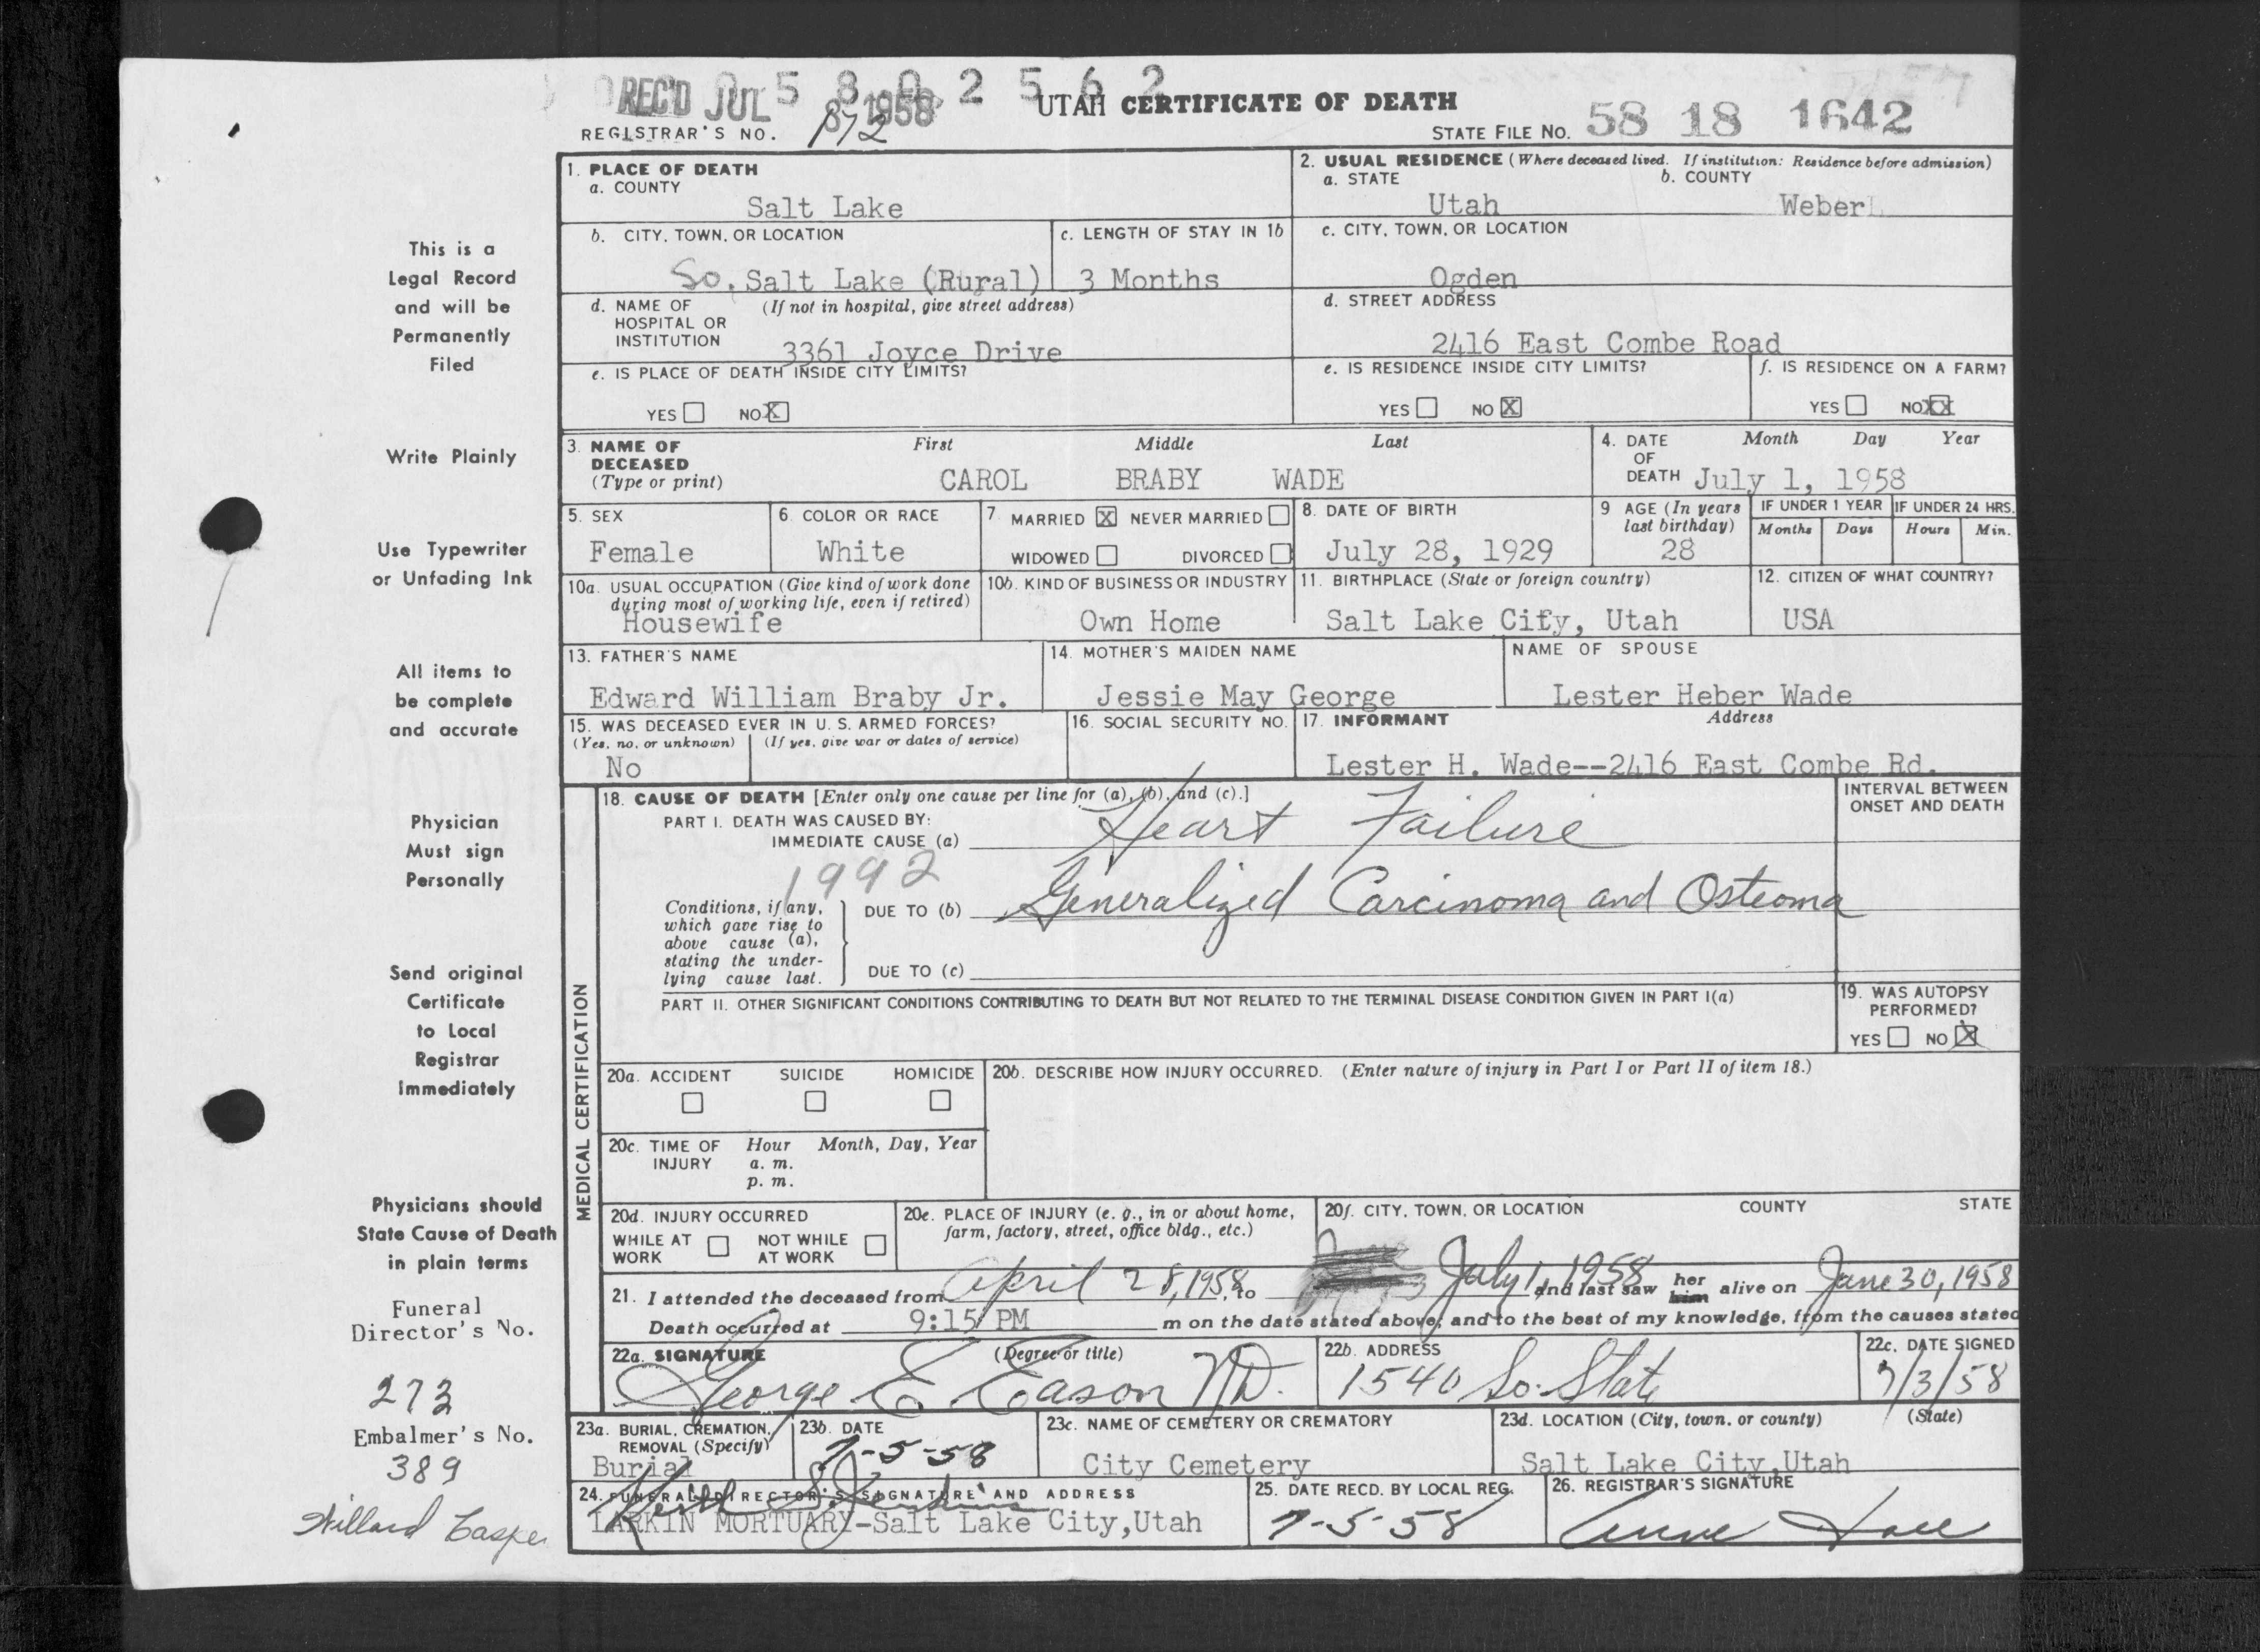 REC'D JUL 8 1958
5 8 0 2 5 6 2
UTAH CERTIFICATE OF DEATH
REGISTRAR'S NO. 172
STATE FILE NO. 58 18 1642
1. PLACE OF DEATH
a. COUNTY
Salt Lake
2. USUAL RESIDENCE (Where deceased lived. If institution: Residence before admission)
a. STATE b. COUNTY
Utah Weber
b. CITY, TOWN, OR LOCATION
So. Salt Lake (Rural)
c. LENGTH OF STAY IN 1b
3 Months
c. CITY, TOWN, OR LOCATION
Ogden
d. NAME OF (If not in hospital, give street address)
HOSPITAL OR
INSTITUTION
3361 Joyce Drive
d. STREET ADDRESS
2416 East Combe Road
e. IS PLACE OF DEATH INSIDE CITY LIMITS?
YES NO X
e. IS RESIDENCE INSIDE CITY LIMITS?
YES NO X
f. IS RESIDENCE ON A FARM?
YES NO XX
3. NAME OF First Middle Last
DECEASED
(Type or print) CAROL BRABY WADE
4. DATE Month Day Year
OF
DEATH July 1, 1958
5. SEX
Female
6. COLOR OR RACE
White
7. MARRIED X NEVER MARRIED
WIDOWED DIVORCED
8. DATE OF BIRTH
July 28, 1929
9 AGE (In years
last birthday)
28
IF UNDER 1 YEAR IF UNDER 24 HRS.
Months Days Hours Min.
10a. USUAL OCCUPATION (Give kind of work done
during most of working life, even if retired)
Housewife
10b. KIND OF BUSINESS OR INDUSTRY
Own Home
11. BIRTHPLACE (State or foreign country)
Salt Lake City, Utah
12. CITIZEN OF WHAT COUNTRY?
USA
13. FATHER'S NAME
Edward William Braby Jr.
14. MOTHER'S MAIDEN NAME
Jessie May George
NAME OF SPOUSE
Lester Heber Wade
15. WAS DECEASED EVER IN U. S. ARMED FORCES?
(Yes, no, or unknown) (If yes, give war or dates of service)
No
16. SOCIAL SECURITY NO.
17. INFORMANT Address
Lester H. Wade--2416 East Combe Rd.
MEDICAL CERTIFICATION
18. CAUSE OF DEATH [Enter only one cause per line for (a), (b), and (c).]
INTERVAL BETWEEN
ONSET AND DEATH
PART I. DEATH WAS CAUSED BY:
IMMEDIATE CAUSE (a) Heart Failure
1992
Conditions, if any,
which gave rise to
above cause (a),
stating the under-
lying cause last.
DUE TO (b) Generalized Carcinoma and Osteoma
DUE TO (c)
PART II. OTHER SIGNIFICANT CONDITIONS CONTRIBUTING TO DEATH BUT NOT RELATED TO THE TERMINAL DISEASE CONDITION GIVEN IN PART I(a)
19. WAS AUTOPSY
PERFORMED?
YES NO X
20a. ACCIDENT SUICIDE HOMICIDE
20b. DESCRIBE HOW INJURY OCCURRED. (Enter nature of injury in Part I or Part II of item 18.)
20c. TIME OF Hour Month, Day, Year
INJURY a. m.
p. m.
20d. INJURY OCCURRED
WHILE AT NOT WHILE
WORK AT WORK
20e. PLACE OF INJURY (e. g., in or about home,
farm, factory, street, office bldg., etc.)
20f. CITY, TOWN, OR LOCATION COUNTY STATE
21. I attended the deceased from April 28, 1958, to July 1, 1958 and last saw her him alive on June 30, 1958
Death occurred at 9:15 PM m on the date stated above; and to the best of my knowledge, from the causes stated
22a. SIGNATURE (Degree or title)
George E Eason MD.
22b. ADDRESS
1540 So. State
22c. DATE SIGNED
7/3/58
23a. BURIAL, CREMATION,
REMOVAL (Specify)
Burial
23b. DATE
7-5-58
23c. NAME OF CEMETERY OR CREMATORY
City Cemetery
23d. LOCATION (City, town, or county) (State)
Salt Lake City, Utah
24. FUNERAL DIRECTOR'S SIGNATURE AND ADDRESS
LARKIN MORTUARY-Salt Lake City,Utah
25. DATE RECD. BY LOCAL REG.
7-5-58
26. REGISTRAR'S SIGNATURE
This is a
Legal Record
and will be
Permanently
Filed
Write Plainly
Use Typewriter
or Unfading Ink
All items to
be complete
and accurate
Physician
Must sign
Personally
Send original
Certificate
to Local
Registrar
immediately
Physicians should
State Cause of Death
in plain terms
Funeral
Director's No.
273
Embalmer's No.
389
Willard